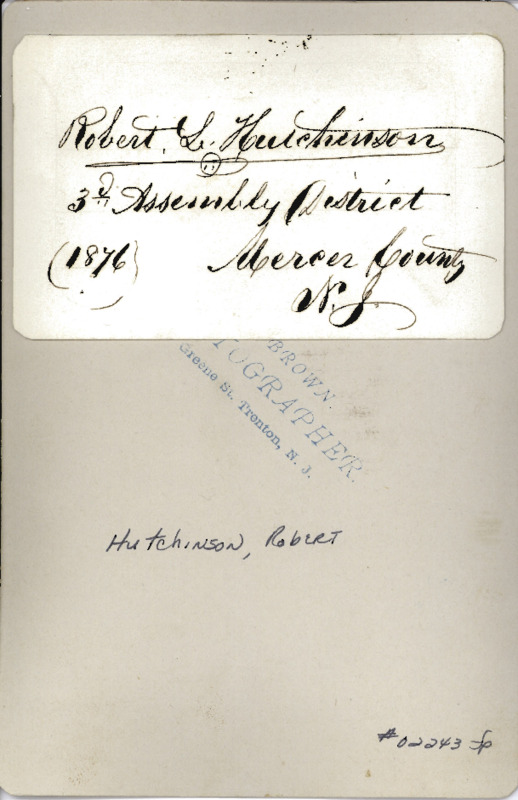 Robert L. Hutchinson
3d Assembly District
(1876) Mercer County
N.J.
BROWN.
TOGRAPHER.
Greene St. Trenton, N. J.
Hutchinson, Robert
#02243